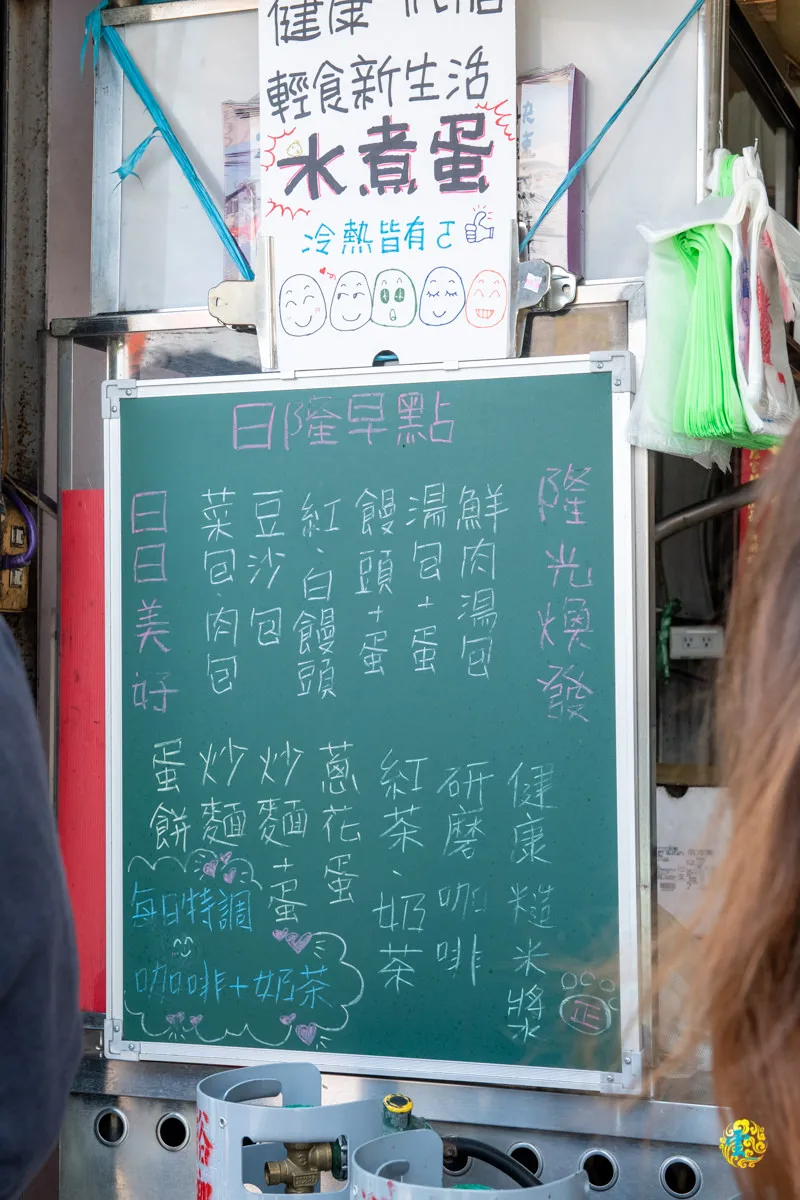 健康 低脂
輕食新生活
水煮蛋
冷熱皆有ㄛ
日隆早點
隆光煥發
鮮肉湯包
湯包+蛋
饅頭+蛋
紅、白饅頭
豆沙包
菜包、肉包
日日美好
健康糙米漿
研磨咖啡
紅茶、奶茶
蔥花蛋
炒麵+蛋
炒麵
蛋餅
每日特調
咖啡+奶茶
正